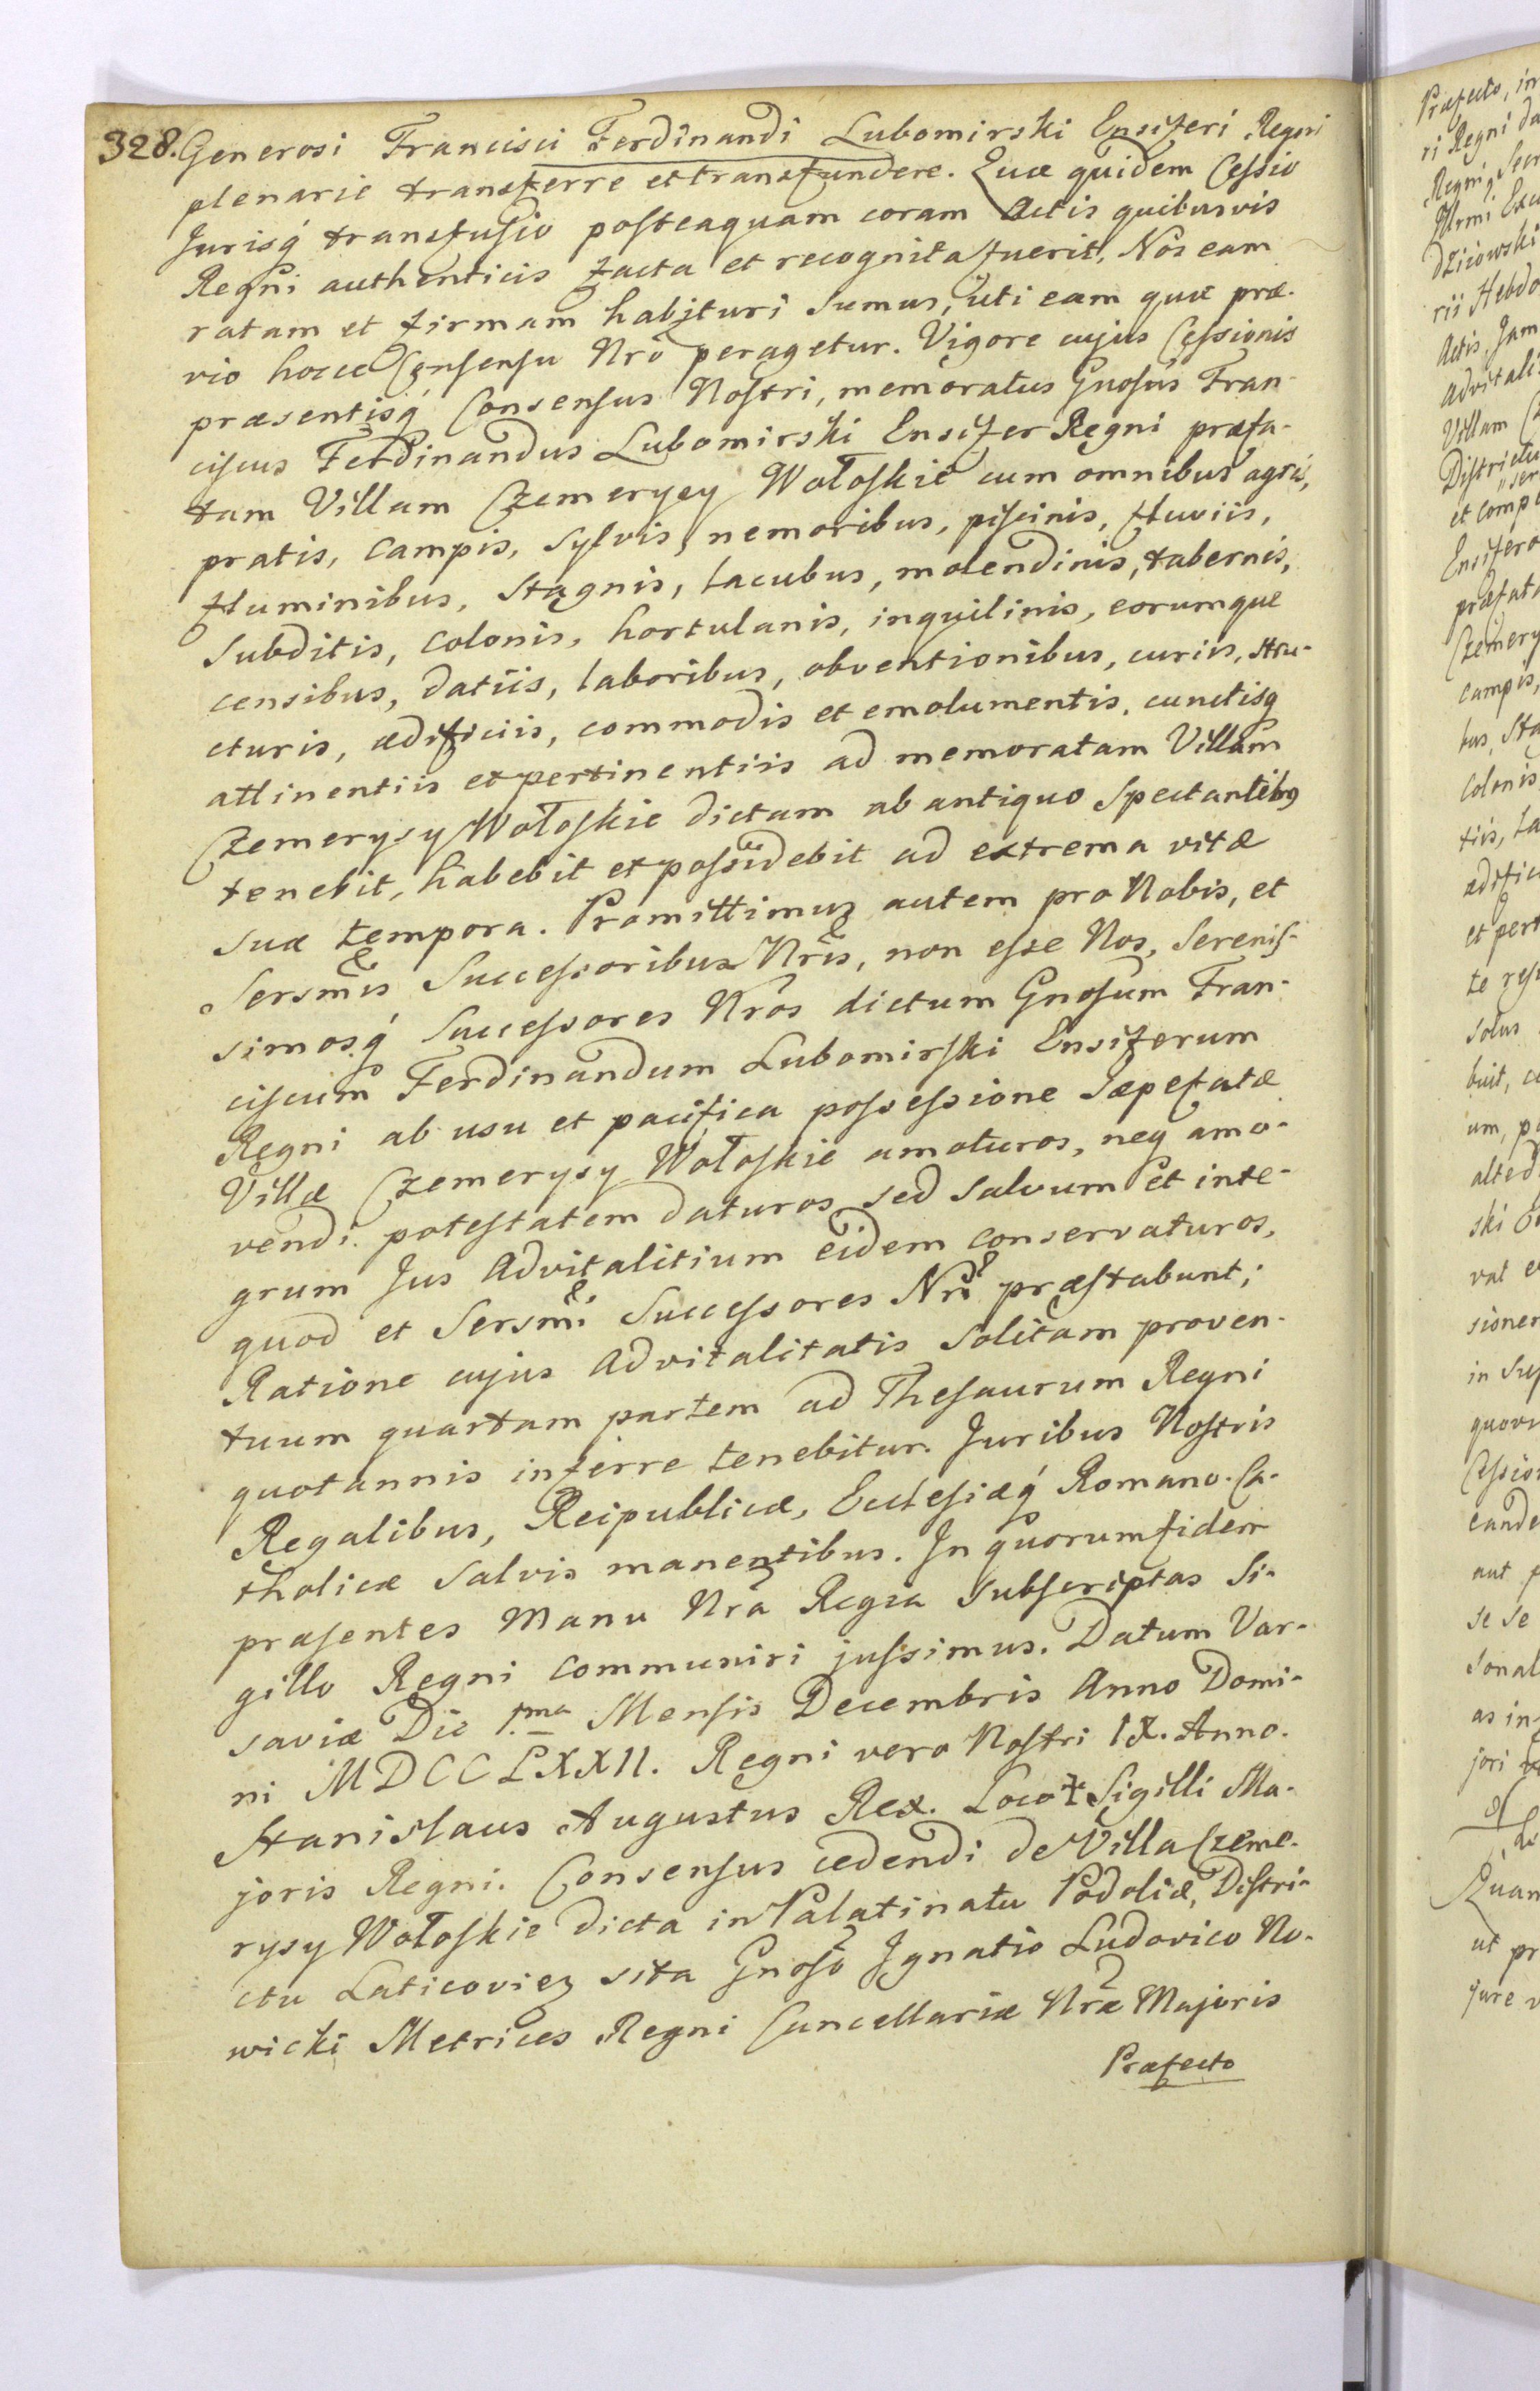 328. Generosi Francisci Ferdinandi Lubomirski Ensiferi Regni
plenarie transferre et transfundere. Quæ quidem Cessio
Jurisq́ transfusio posteaquam coram Actis quibusvis
Regni authenticis facta et recognita fuerit, Nos eam
ratam et firmam habituri sumus, uti eam quæ præ-
vio hocce Consensu Nrō peragetur. Vigore cujus Cessionis
præsentisq́ Consensus Nostri, memoratus Gnosus Fran-
ciscus Ferdinandus Lubomirski Ensifer Regni præfa-
tam Villam Czemerysy Wołoskie cum omnibus agris,
pratis, campis, sylvis, nemoribus, piscinis, fluviis,
fluminibus, stagnis, lacubus, molendinis, tabernis,
subditis, colonis, hortulanis, inquilinis, eorumque
censibus, datiis, laboribus, obventionibus, curiis, stru-
cturis, ædificiis, commodis et emolumentis, cunctisq
attinentiis et pertinentiis ad memoratam Villam
Czemerysy Wołoskie dictam ab antiquo spectantibq
tenebit, habebit et possidebit ad extrema vitæ
suæ tempora. Promittimus autem pro Nobis, et
Sersmis Successoribus Nris, non esse Nos, Serenis-
simosq́ Successores Nros dictum Gnosum Fran-
ciscum Ferdinandum Lubomirski Ensiferum
Regni ab usu et pacifica possessione sæpefatæ
Villæ Czemerysy Wołoskie amoturos, neq amo-
vendi potestatem daturos, sed salvum et inte-
grum Jus Advitalitium eidem conservaturos,
quod et Sersmi Successores Nri præstabunt;
Ratione cujus Advitalitatis solitam proven-
tuum quartam partem ad Thesaurum Regni
quotannis inferre tenebitur. Juribus Nostris
Regalibus, Reipublicæ, Ecclesiæq́ Romano-Ca-
tholicæ salvis manentibus. In quorum fidem
præsentes Manu Nrā Regia subscriptas Si-
gillo Regni communiri jussimus. Datum Var-
saviæ Die 1.ma Mensis Decembris Anno Domi-
ni MDCCLXXII. Regni vero Nostri IX. Anno.
Stanislaus Augustus Rex. Loco + Sigilli Ma-
joris Regni. Consensus cedendi de Villa Czeme-
rysy Wołoskie dicta in Palatinatu Podoliæ, Distri-
ctu Laticoviem sita Gnoso Ignatio Ludovico No-
wicki Metrices Regni Cancellariæ Nræ Majoris
Præfecto
Præfecto, in
ri Regni da
dzicowski
rii Hebdo
Actis, Jam
Advitali
Villam
Districtu
et compe
Ensifero
præfata
Czemery
campis,
bus, Sta
colonis
tiis, la
ædifici
et pert
te resi
solus
buit, c
um, po
alted
ski
vat e
sionem
in sup
quovi
Cession
eande
aut f
se se
sonal
as in
jori
Quan
ut pr
jure v